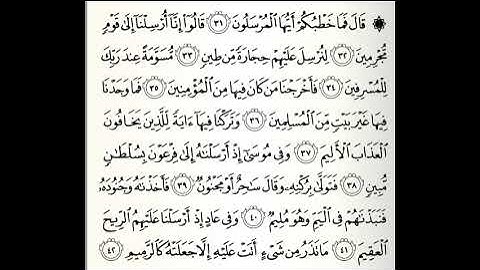 ۞ قَالَ فَمَا خَطْبُكُمْ أَيُّهَا ٱلْمُرْسَلُونَ ٣١ قَالُوٓا۟ إِنَّآ أُرْسِلْنَآ إِلَىٰ قَوْمٍ
مُّجْرِمِينَ ٣٢ لِنُرْسِلَ عَلَيْهِمْ حِجَارَةً مِّن طِينٍ ٣٣ مُّسَوَّمَةً عِندَ رَبِّكَ
لِلْمُسْرِفِينَ ٣٤ فَأَخْرَجْنَا مَن كَانَ فِيهَا مِنَ ٱلْمُؤْمِنِينَ ٣٥ فَمَا وَجَدْنَا
فِيهَا غَيْرَ بَيْتٍ مِّنَ ٱلْمُسْلِمِينَ ٣٦ وَتَرَكْنَا فِيهَآ ءَايَةً لِّلَّذِينَ يَخَافُونَ
ٱلْعَذَابَ ٱلْأَلِيمَ ٣٧ وَفِى مُوسَىٰٓ إِذْ أَرْسَلْنَٰهُ إِلَىٰ فِرْعَوْنَ بِسُلْطَٰنٍ
مُّبِينٍ ٣٨ فَتَوَلَّىٰ بِرُكْنِهِۦ وَقَالَ سَٰحِرٌ أَوْ مَجْنُونٌ ٣٩ فَأَخَذْنَٰهُ وَجُنُودَهُۥ
فَنَبَذْنَٰهُمْ فِى ٱلْيَمِّ وَهُوَ مُلِيمٌ ٤٠ وَفِى عَادٍ إِذْ أَرْسَلْنَا عَلَيْهِمُ ٱلرِّيحَ
ٱلْعَقِيمَ ٤١ مَا تَذَرُ مِن شَىْءٍ أَتَتْ عَلَيْهِ إِلَّا جَعَلَتْهُ كَٱلرَّمِيمِ ٤٢